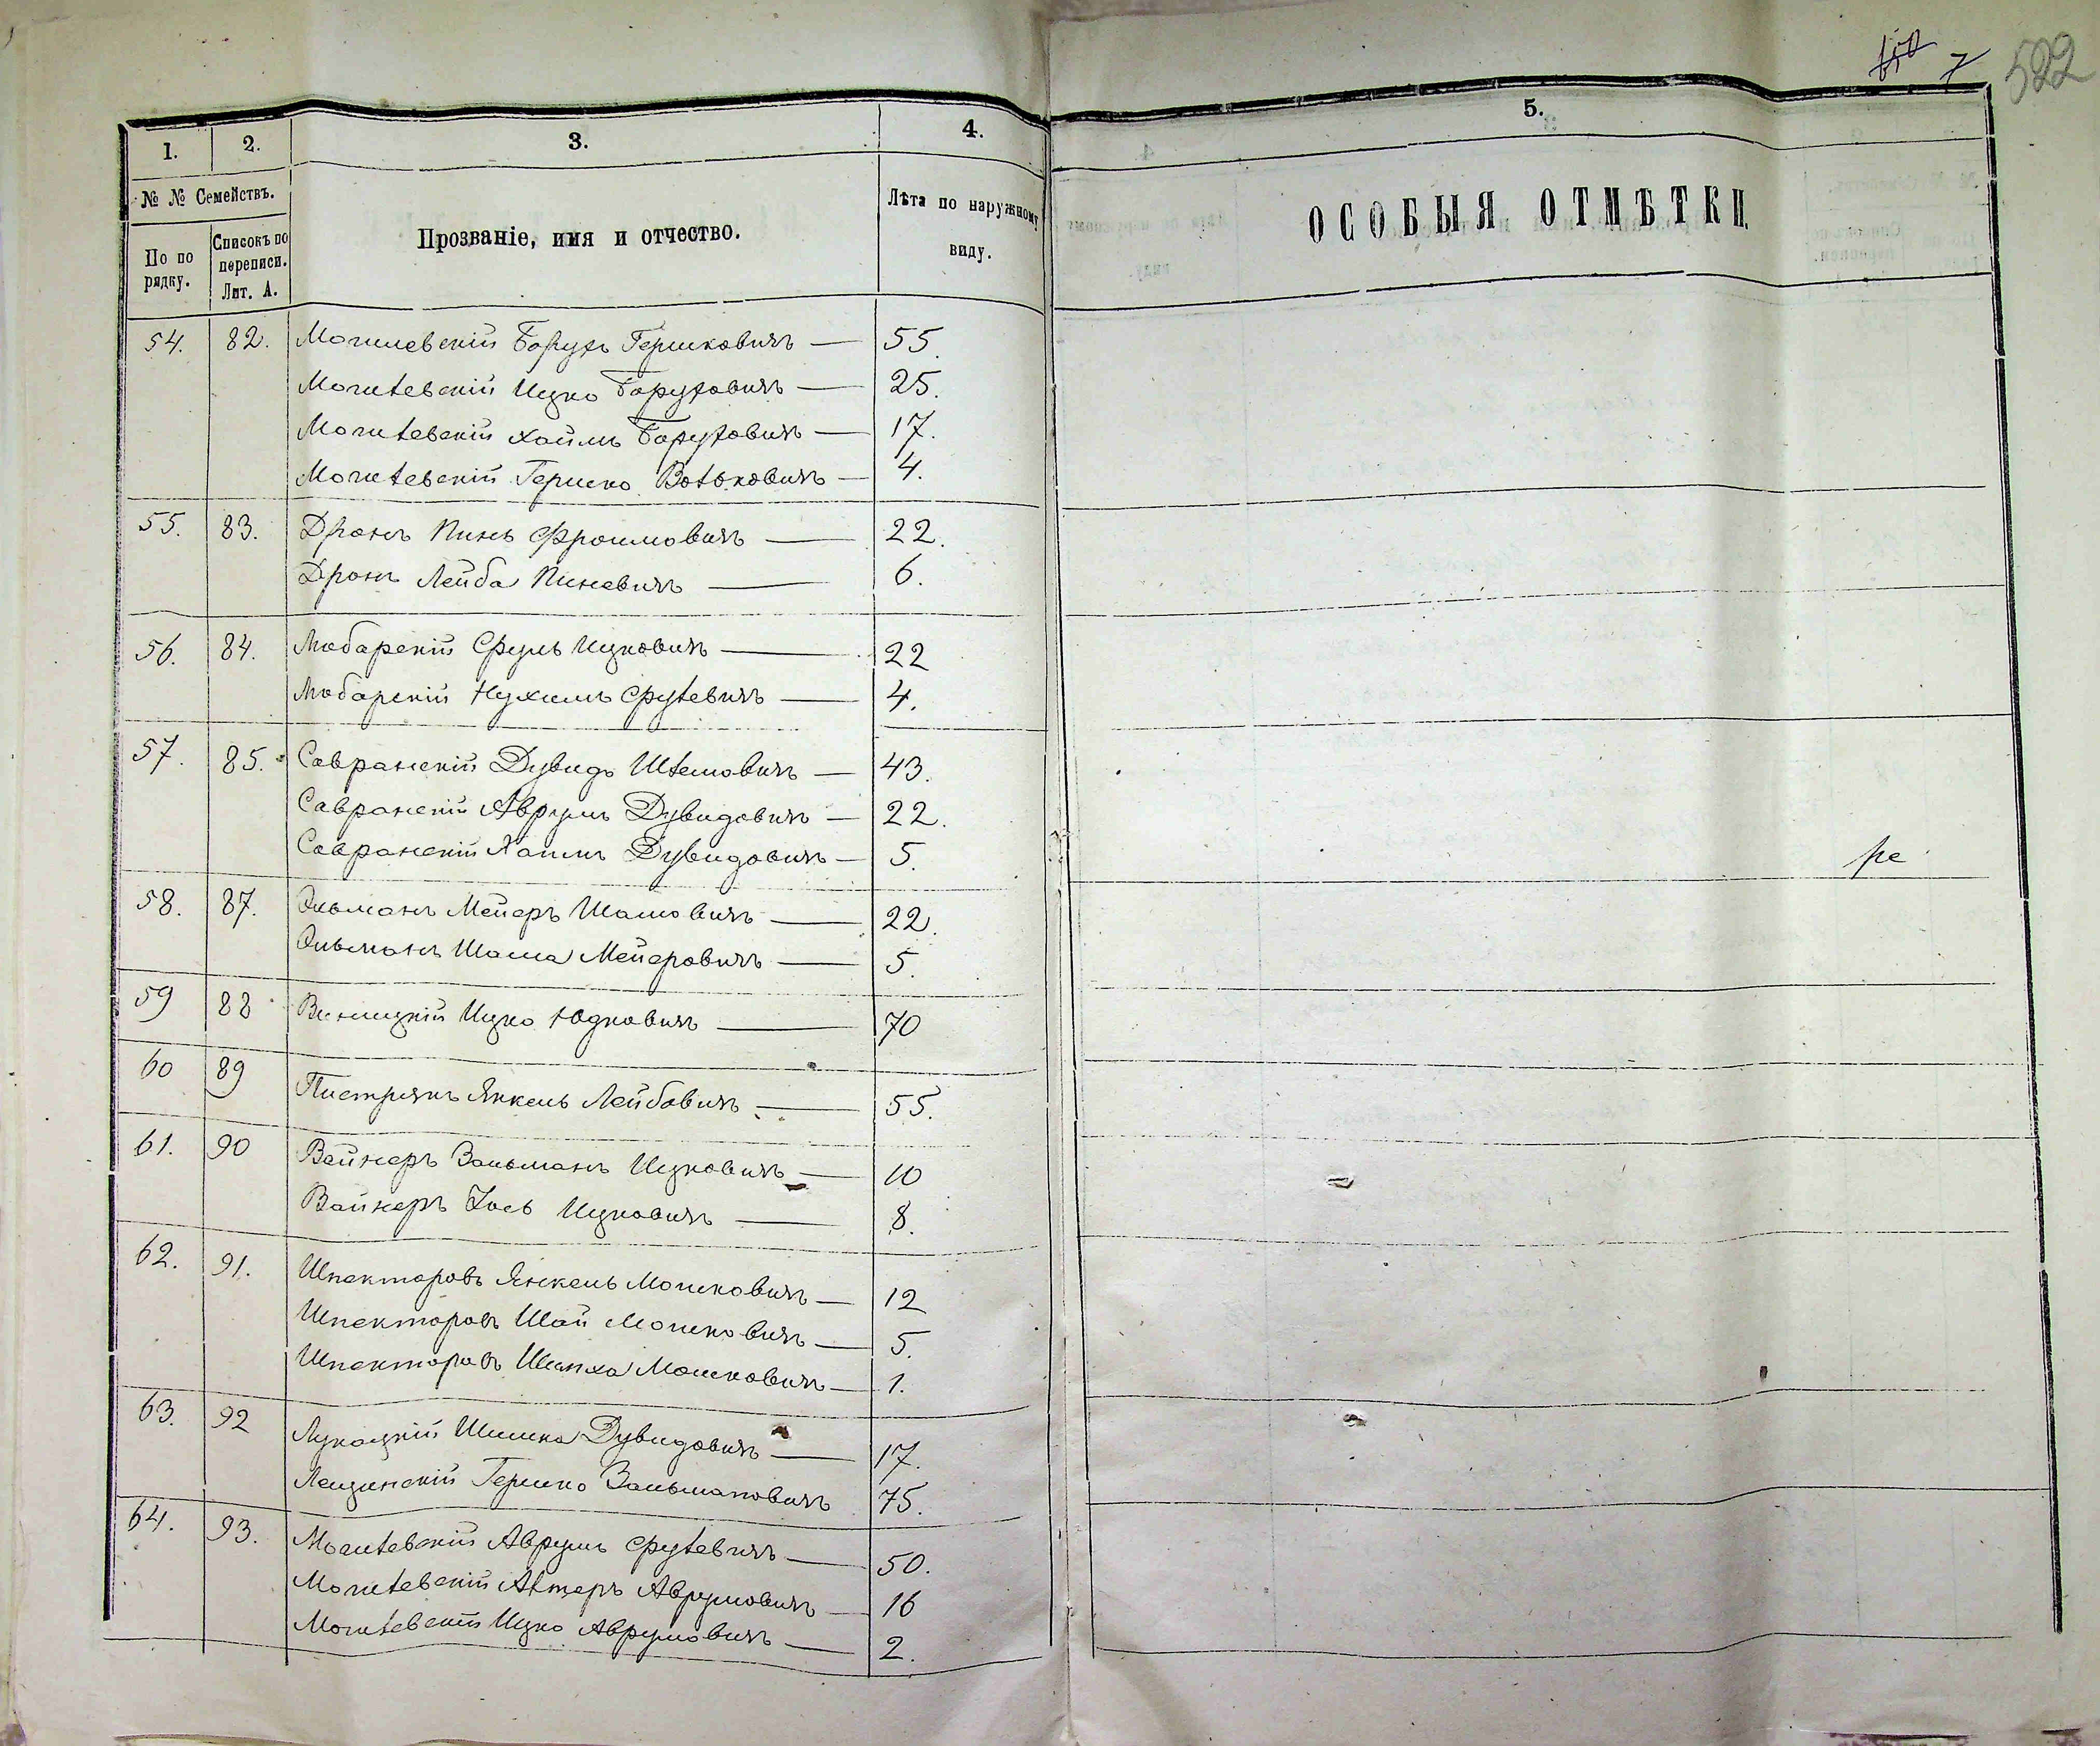 7 522
1. 2. 3. 4. 5.
№ № Семействъ.
По по рядку.
Списокъ по переписи. Лит. А.
Прозваніе, имя и отчество.
Лѣта по наружному виду.
ОСОБЫЯ ОТМѢТКИ.
54. 82. Могилевскій Борухъ Гершковичъ — 55.
Могилевскій Ицко Боруховичъ — 25.
Могилевскій Хаимъ Боруховичъ — 17.
Могилевскій Гершко Вольковичъ — 4.
55. 83. Дронъ Пинь Фроимовичъ — 22.
Дронъ Лейба Пиневичъ — 6.
56. 84. Любарскій Сруль Ицковичъ — 22
Любарскій Нухимъ Срулевичъ — 4.
57. 85. Савранскій Дувидъ Шлемовичъ — 43.
Савранскій Аврумъ Дувидовичъ — 22.
Савранскій Хаимъ Дувидовичъ — 5.
58. 87. Эльманъ Мейеръ Шамовичъ — 22.
Эльманъ Шама Мейеровичъ — 5.
59 88 Виницкій Ицко Юдковичъ — 70
60 89 Пистрякъ Янкель Лейбовичъ — 55.
61. 90 Вайнеръ Зальманъ Ицковичъ — 10
Вайнеръ Іось Ицковичъ — 8.
62. 91. Шпекторовъ Янкель Мошковичъ — 12
Шпекторовъ Шаи Мошковичъ — 5.
Шпекторовъ Мошковичъ — 1.
63. 92 Лукацкій Шимка Дувидовичъ — 17.
Лещинскій Гершко Зальмановичъ 75.
64. 93. Могилевскій Аврумъ Срулевичъ — 50.
Могилевскій Алтеръ Аврумовичъ — 16
Могилевскій Ицко Аврумовичъ — 2.